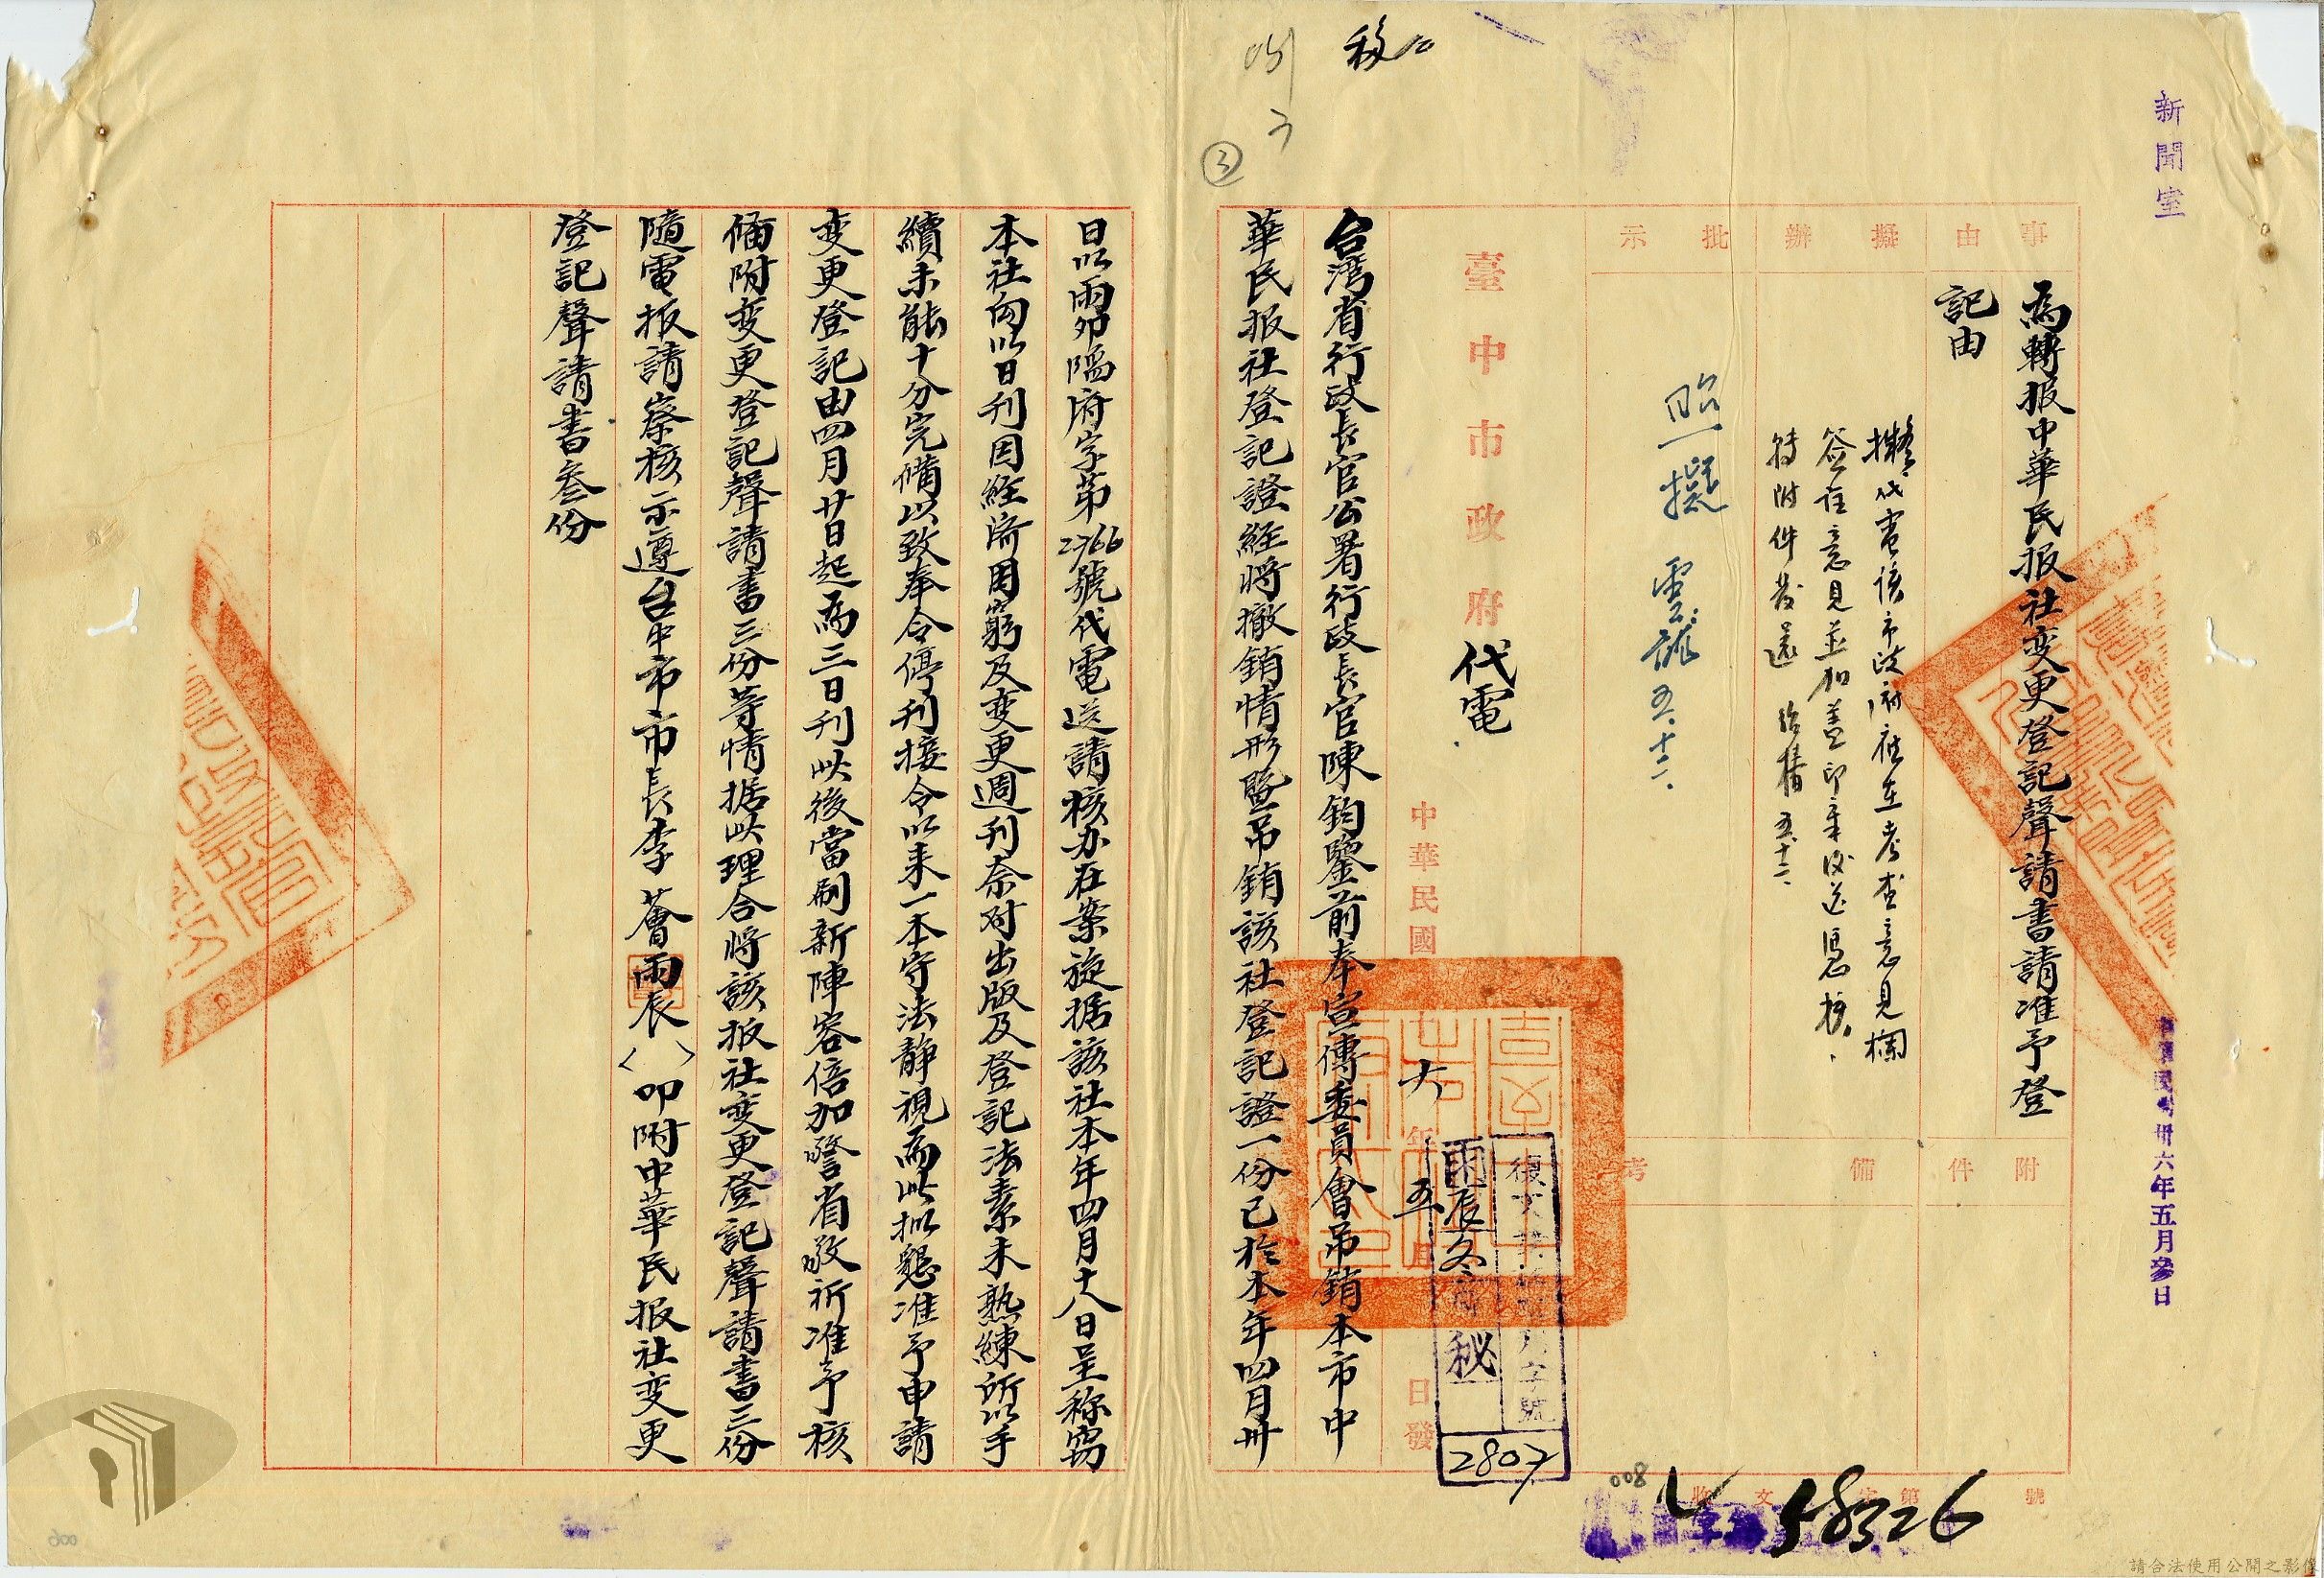 新聞室
事由
擬辦
批示
為轉报中華民报社变更登記聲請書請准予登
記由
擬代電該市政府在考查意見欄
簽註意見並加蓋印章後送憑核
特附件發還
五.十二.
照擬
五.十二.
附件
備考
臺中市政府代電
中華民國
六年五月
日發
秘
2807
台湾省行政長官公署行政長官陳鈞鑒前奉宣傳委員會吊銷本市中
華民报社登記證経将撤銷情形暨吊銷該社登記證一份已於本年四月卅
日以雨卯陷府字第2766號代電送請核办在案旋据該社本年四月十八日呈称窃
本社向以日刊因経済困窮及变更週刊奈对出版及登記法素未熟練所以手
續未能十分完備以致奉令停刊接令以来一本守法静視為此拟懇准予申請
变更登記由四月廿日起為三日刊此後當刷新陣容倍加警省敬祈准予核
備附变更登記聲請書三份等情据此理合将該报社变更登記聲請書三份
隨電报請察核示遵台中市市長李薈雨辰〈〉叩附中華民报社变更
登記聲請書叁份
卅六年五月參日
收文 字第 號
58326
008
移
3
請合法使用公開之影像